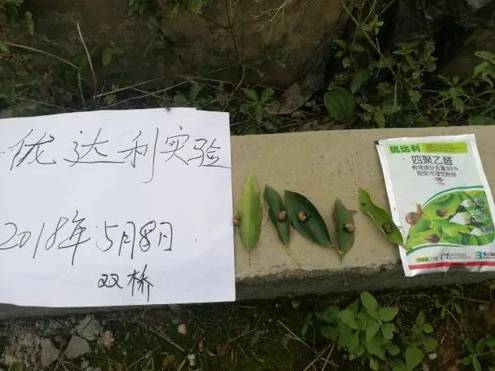 优达利实验
2018年5月8日
双桥
优达利
四聚乙醛